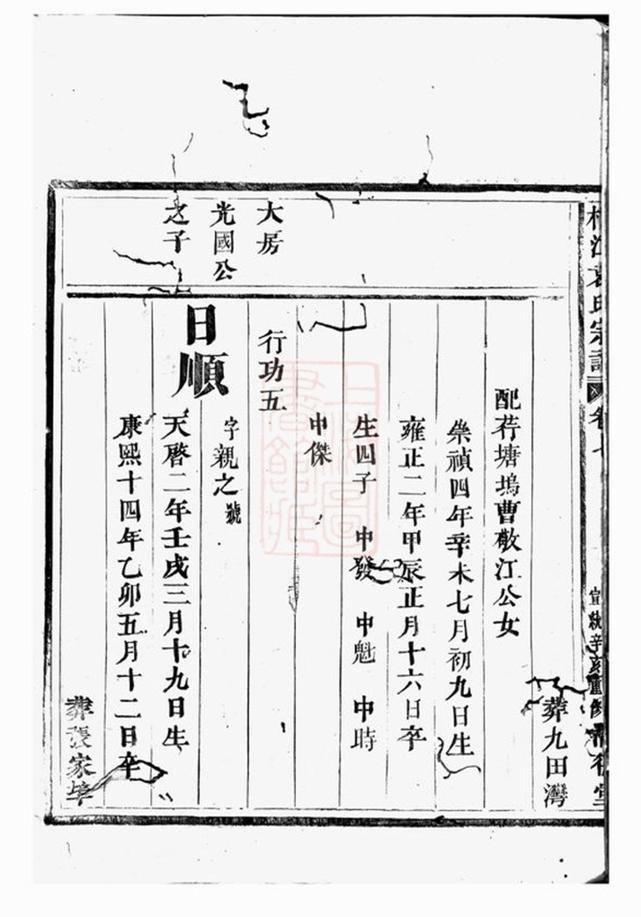 江袁氏宗譜 卷七 宣統辛亥重修 堂
葬九田灣
配荇塘塢曹敬江公女
崇禎四年辛未七月初九日生
雍正二年甲辰正月十六日卒
生四子 中發 中魁 中時
中傑
大房
光國公
之子
行功五
日順
字親之號
天啓二年壬戌三月十九日生
康熙十四年乙卯五月十二日卒
葬張家埠